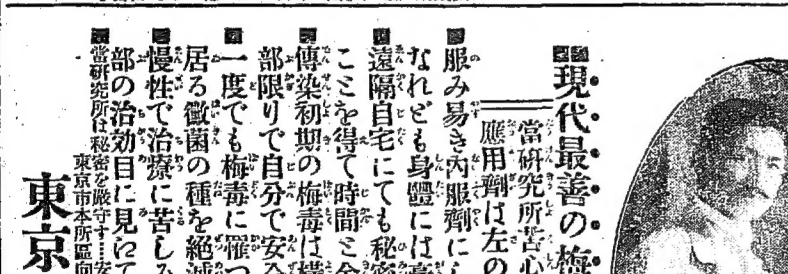 現代最善の梅
當研究所苦心
應用劑は左の
服み易き內服劑にし
なれども身體には
遠隔自宅にても秘密
ことを得て時間と
傳染初期の梅毒は
部限りで自分で安
一度でも梅毒に罹つ
居る黴菌の種を絕滅
慢性で治療に苦しみ
部の治効目に見えて
當研究所は秘密を嚴守す
東京市本所區向
東京